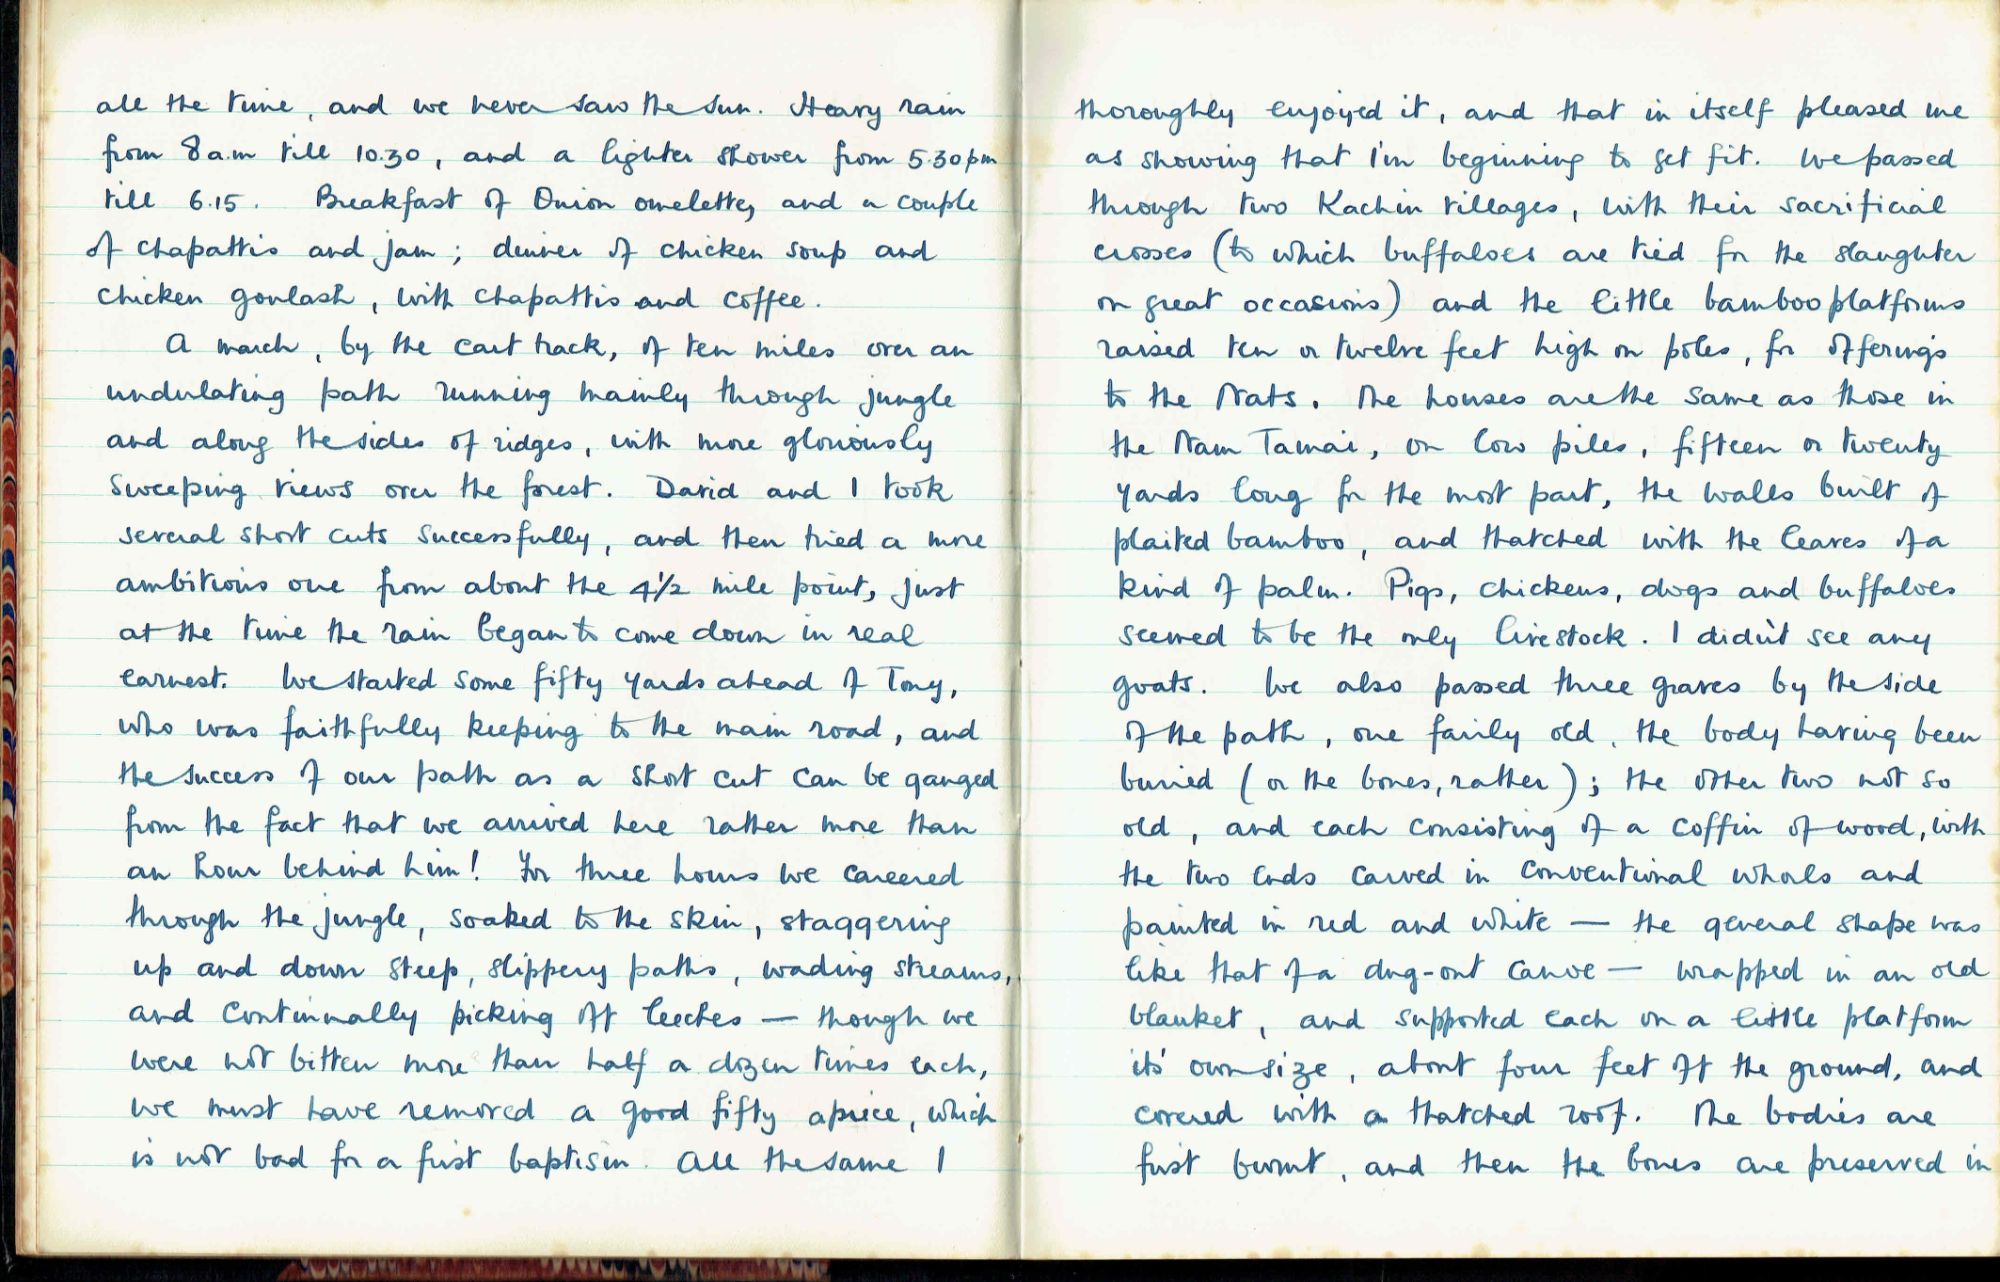 all the time, and we never saw the sun. Heavy rain
from 8 a.m till 10.30, and a lighter shower from 5.30 pm
till 6.15. Breakfast of Onion omelette, and a couple
of chapattis and jam; dinner of chicken soup and
chicken goulash, with chapattis and coffee.
A march, by the cart track, of ten miles over an
undulating path running mainly through jungle
and along the sides of ridges, with more gloriously
sweeping views over the forest. David and I took
several short cuts successfully, and then tried a more
ambitious one from about the 4½ mile point, just
at the time the rain began to come down in real
earnest. We started some fifty yards ahead of Tony,
who was faithfully keeping to the main road, and
the success of our path as a short cut can be gauged
from the fact that we arrived here rather more than
an hour behind him! For three hours we careered
through the jungle, soaked to the skin, staggering
up and down steep, slippery paths, wading streams,
and continually picking off leeches — though we
were not bitten more than half a dozen times each,
we must have removed a good fifty apiece, which
is not bad for a first baptism. All the same I
thoroughly enjoyed it, and that in itself pleased me
as showing that I'm beginning to get fit. We passed
through two Kachin villages, with their sacrificial
crosses (to which buffaloes are tied for the slaughter
on great occasions) and the little bamboo platforms
raised ten or twelve feet high on poles, for offerings
to the Nats. The houses are the same as those in
the Nam Tamai, on low piles, fifteen or twenty
yards long for the most part, the walls built of
plaited bamboo, and thatched with the leaves of a
kind of palm. Pigs, chickens, dogs and buffaloes
seemed to be the only livestock. I didn't see any
goats. We also passed three graves by the side
of the path, one fairly old, the body having been
buried (or the bones, rather); the other two not so
old, and each consisting of a coffin of wood, with
the two ends carved in conventional whorls and
painted in red and white — the general shape was
like that of a dug-out canoe — wrapped in an old
blanket, and supported each on a little platform
its' own size, about four feet off the ground, and
covered with a thatched roof. The bodies are
first burnt, and then the bones are preserved in